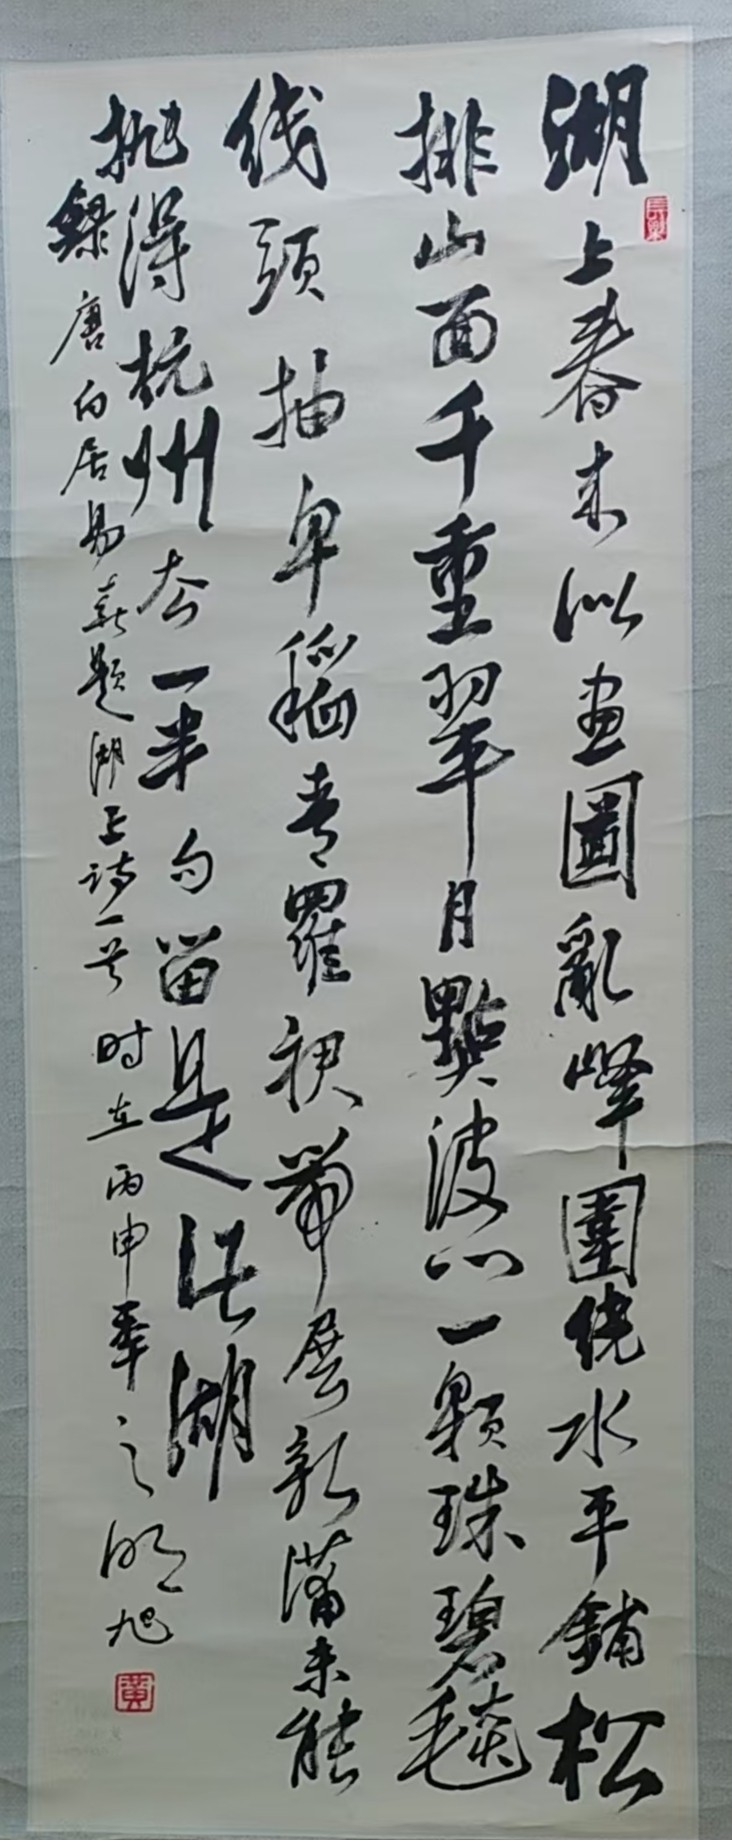 湖上春来似画圖亂峰圍绕水平鋪松
排山面千重翠月點波心一顆珠碧毯
线頭抽早稻青羅裙帶展新蒲未能
抛得杭州去一半勾留是此湖
錄唐白居易题湖上诗一首时在丙申之明旭
黄